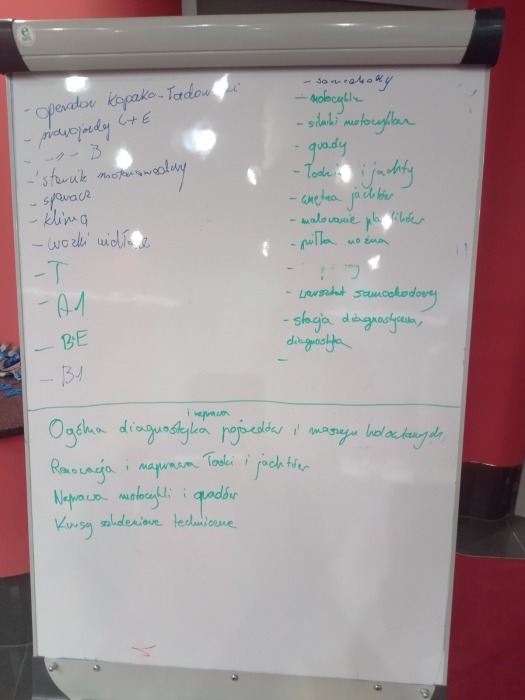 - operator Kopako-Ładowarki
- prawo jazdy C+E
- -//- B
- sternik motorowodny
- spawacz
- klima
- wózki widłowe
- T
- A1
- BE
- B1
- samochody
- motocykle
- silniki motocyklowe
- quady
- Łodzie i jachty
- wnętrza jachtów
- malowanie plastików
- piłka nożna
- warsztat samochodowy
- stacja diagnostyczna,
diagnosta
-
i naprawa
Ogólna diagnostyka pojazdów i maszyn
Renowacja i naprawa Łodzi i jachtów
Naprawa motocykli i quadów
Kursy szkoleniowe techniczne